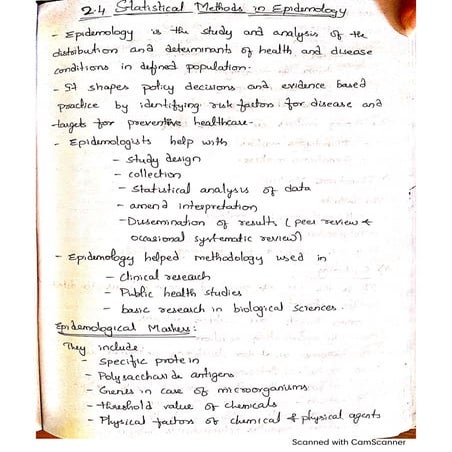 2.4 Statistical Methods in Epidemology
- Epidemology is the study and analysis of the
distribution and determinants of health and disease
conditions in defined population.
- It shapes policy decisions and evidence based
practice by identifying risk factors for disease and
targets for preventive healthcare.
- Epidemologists help with
- study design
- collection
- statistical analysis of data
- amend interpretation
- Dissemination of results (peer review &
occasional systematic review)
- Epidemology helped methodology used in
- clinical research
- Public health studies
- basic research in biological sciences.
Epidemological Markers:
They include
- specific protein
- Polysaccharide antigens
- Genes in case of microorganisms
- threshold value of chemicals
- Physical factors of chemical & physical agents
Scanned with CamScanner